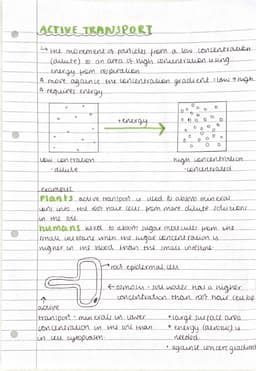 ACTIVE TRANSPORT
↳ the movement of particles from a low concentration
(dilute) to an area of high concentration using
energy from respiration
* move against the concentration gradient: low → high
* requires energy
+energy
low concentration
- dilute
high concentration
- concentrated
examples
Plants: active transport is used to absorb mineral
ions into the root hair cells from more dilute solutions
in the soil
humans: used to absorb sugar molecules from the
small intestine when the sugar concentration is
higher in the blood than the small intestine
root epidermal cell
osmosis - soil water has a higher
concentration than root hair cell
active
transport - minerals in lower
concentration in the soil than
in cell cytoplasm
* large surface area
* energy (aerobic) is
needed
* against concen gradient